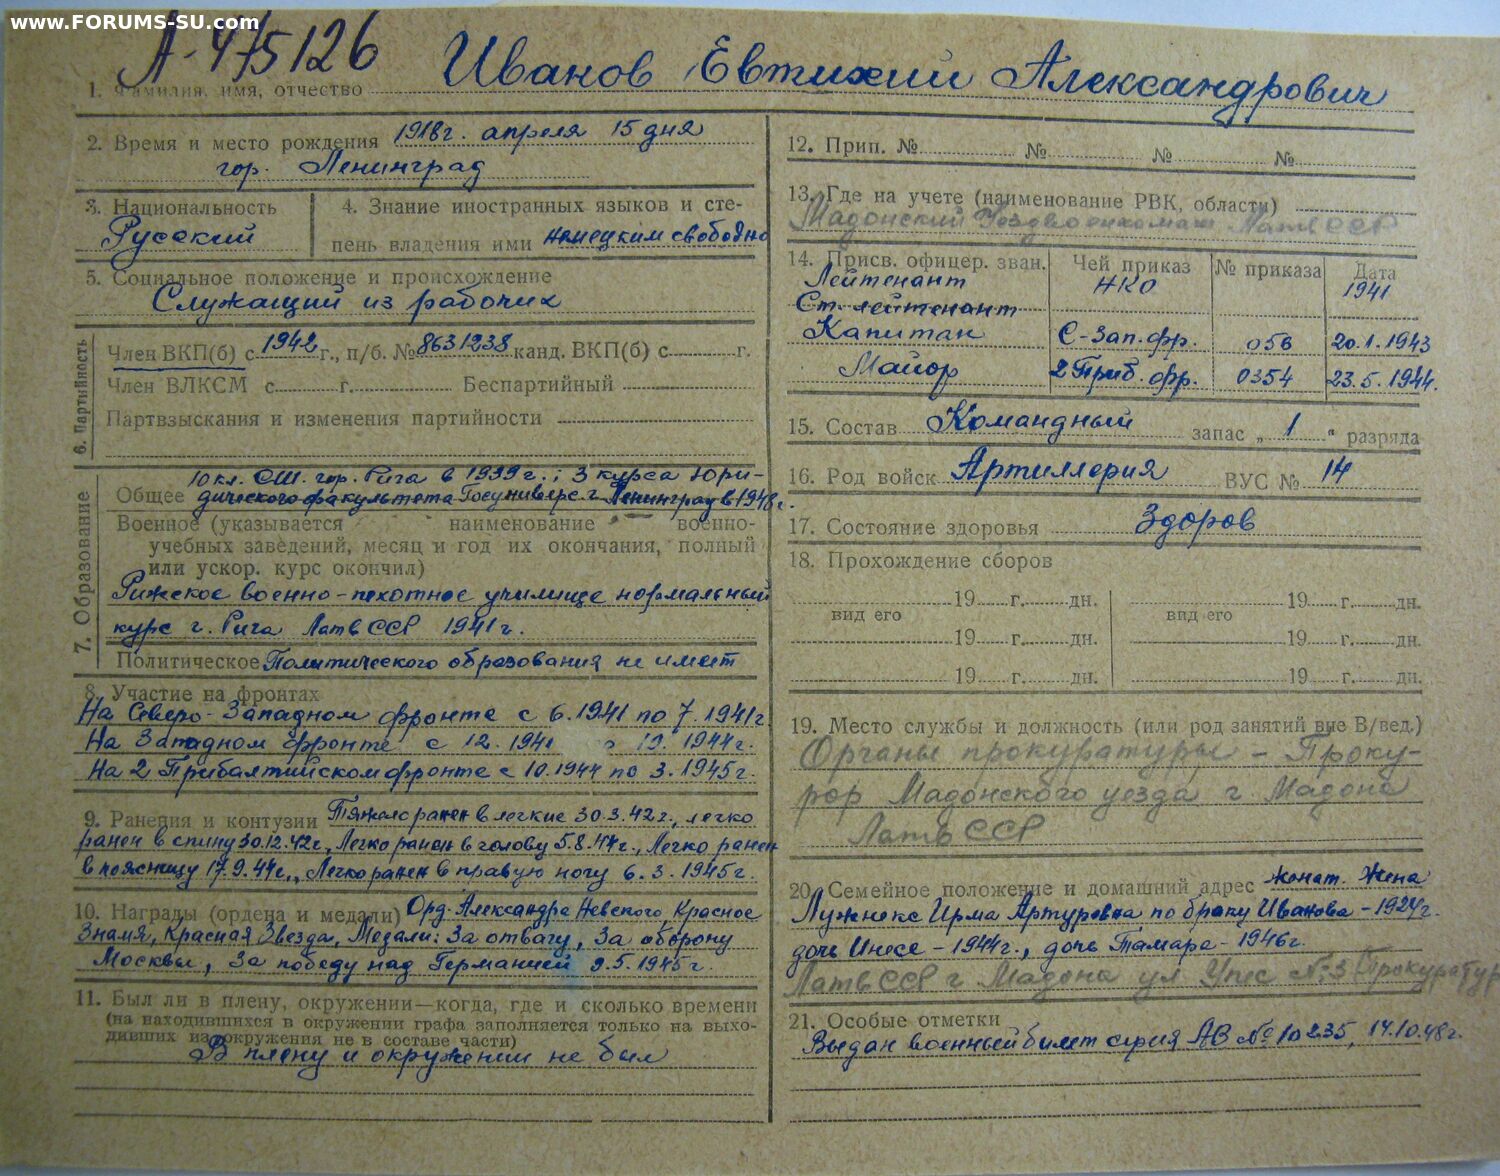 www.FORUMS-SU.com
А-475126
1. Фамилия, имя, отчество Иванов Евтихий Александрович
2. Время и место рождения 1918г. апреля 15 дня
гор. Ленинград
3. Национальность
Русский
4. Знание иностранных языков и сте-
пень владения ими немецким свободно
5. Социальное положение и происхождение
Служащий из рабочих
6. Партийность
Член ВКП(б) с 1942 г., п/б. № 8631238 канд. ВКП(б) с г.
Член ВЛКСМ с г. Беспартийный
Партвзыскания и изменения партийности
7. Образование
10 кл. СШ. гор. Рига в 1939г.; 3 курса Юри-
Общее дического факультета Госуниверс. г. Ленинград в 1948г.
Военное (указывается наименование военно-
учебных заведений, месяц и год их окончания, полный
или ускор. курс окончил)
Рижское военно-пехотное училище нормальный
курс г. Рига ЛатвССР 1941г.
Политическое Политического образования не имеет
8. Участие на фронтах
На Северо-Западном фронте с 6.1941 по 7.1941г.
На Западном фронте с 12.1941 по 19.1944г.
На 2 Прибалтийском фронте с 10.1944 по 3.1945г.
9. Ранения и контузии Тяжело ранен в легкие 30.3.42г., легко
ранен в спину 30.12.42г., Легко ранен в голову 5.8.44г., Легко ранен
в поясницу 17.9.44г., Легко ранен в правую ногу 6.3.1945г.
10. Награды (ордена и медали) Орд. Александра Невского, Красное
Знамя, Красная Звезда, Медали: За отвагу, За оборону
Москвы, За победу над Германией 9.5.1945г.
11. Был ли в плену, окружении—когда, где и сколько времени
(на находившихся в окружении графа заполняется только на выхо-
дивших из окружения не в составе части)
В плену и окружении не был
12. Прип. № № № №
13. Где на учете (наименование РВК, области)
Мадонский Уездвоенкомат ЛатвССР
14. Присв. офицер. зван. Чей приказ № приказа Дата
Лейтенант НКО 1941
Ст. лейтенант
Капитан С-Зап.фр. 056 20.1.1943
Майор 2 Приб.фр. 0354 23.5.1944.
15. Состав Командный запас „ 1 “ разряда
16. Род войск Артиллерия ВУС № 14
17. Состояние здоровья Здоров
18. Прохождение сборов
19 г. дн. 19 г. дн.
вид его вид его
19 г. дн. 19 г. дн.
19 г. дн. 19 г. дн.
19. Место службы и должность (или род занятий вне В/вед.)
Органы прокуратуры - Проку-
рор Мадонского уезда г. Мадона
ЛатвССР
20. Семейное положение и домашний адрес женат. Жена
Лужнекс Ирма Артуровна по браку Иванова - 1924г.
дочь Инесе - 1944г., дочь Тамара - 1946г.
ЛатвССР г Мадона ул Упес № 3 Прокуратур
21. Особые отметки
Выдан военный билет серия АВ № 10235, 14.10.48г.